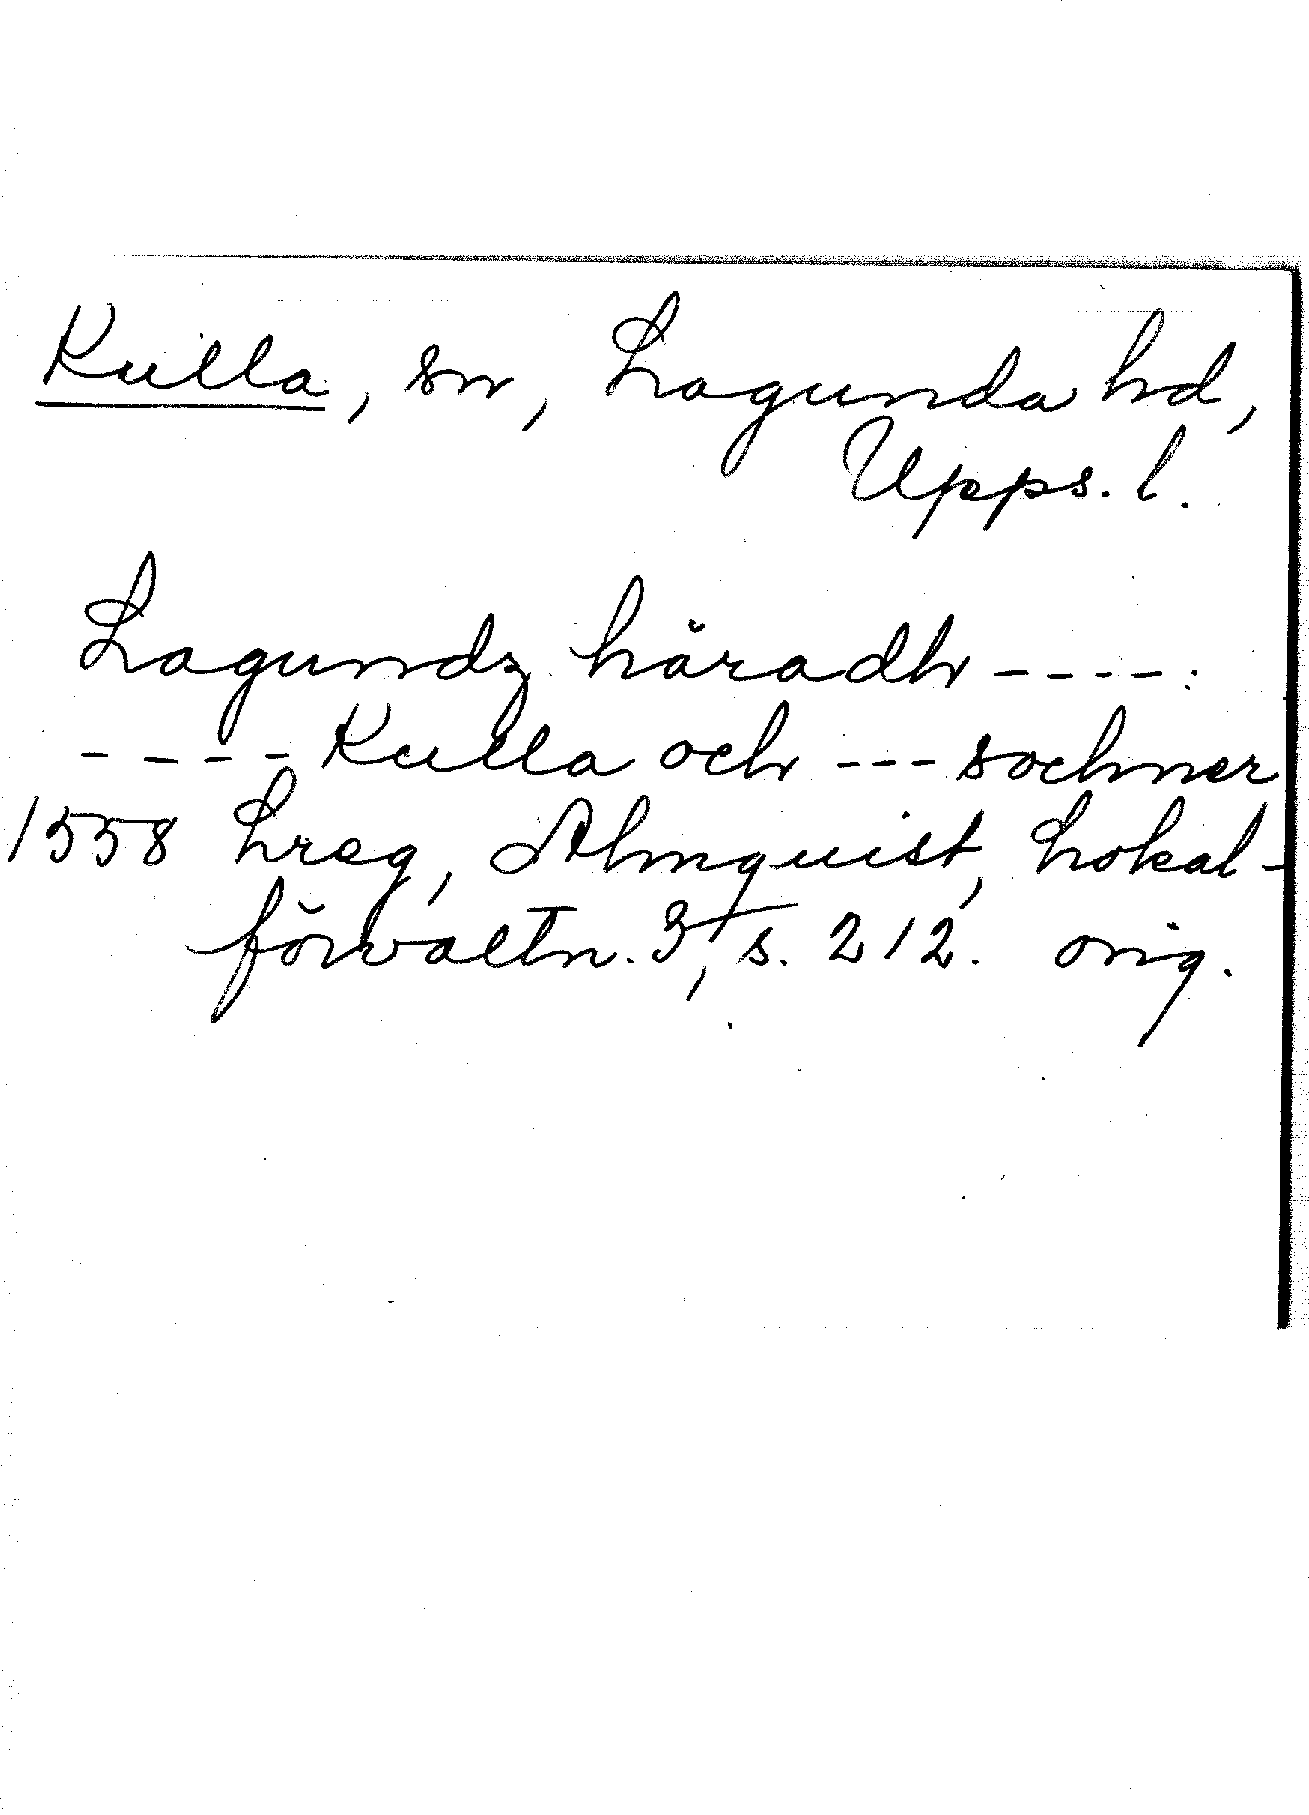 Kulla, sn, Lagunda hd,
Upps. l.
Lagundz häradh ----.
---- Kulla och --- sochner
1558 Lreg, Almquist, Lokal-
förvaltn. 3, s. 212. orig.